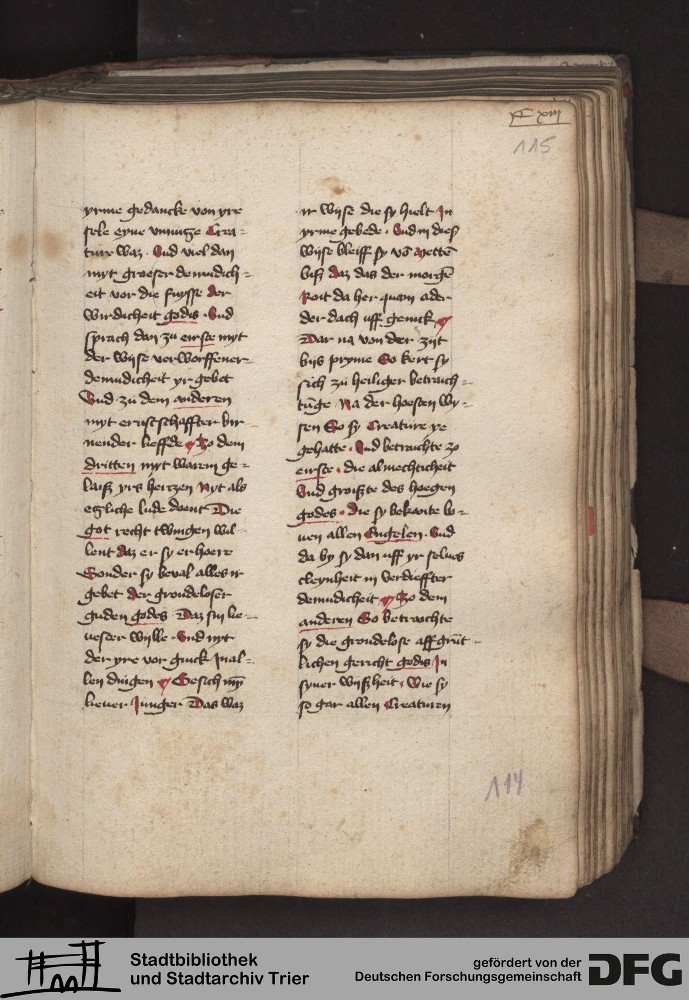 xC xiij
115
yrme gedancke von yre
sele eyne vnnutze Crea¬
tuer waz · Vnd viel dan
myt groeser demudich¬
eit vor die fuysse der
wirdicheit godis · Vnd
sprach dan zu eirste myt
der wijse verworffener
demudicheit yr gebet
Vnd zu dem anderen
myt ernstschaffter bir¬
nender lieffde zo dem
dritten myt warem ge¬
laiß yrs hertzen Nyt als
etzliche lude doent Die
got recht twingen wil¬
lent daz er sy erhoere
Sonder sy beval alles ir
gebet der grondeloser
guden godes Daz sin lie¬
uester wylle · Vnd myt
der yre vor ginck In al¬
len dingen Gesich myn
lieuer Iunger Das waz
ir wijse die sy hielt In
yrme gebede · Vnd in dieß
wijse bleiff sy vō mettē
biß daz das der morgē
Roit da her quam ader
der dach uff genick
Dar na von der zijt
biis pryme So kert sy
sich zu heiliger betraich¬
tūge Na der hoesten wy¬
sen So sy Creature ye
gehatte · Vnd betrachte zo
eirste · die almechticheit
Vnd groißte des hoegen
godes · die sy bekante bo¬
uen allen Engelen · Vnd
da by sy dan uff yr selues
cleynheit in verdieffter
demudicheit zo dem
anderen So betrachte
sy die grondelose affgrūt¬
lichen gericht godis In
syner wijßheit · Wie sy
so gar allen Creaturen
114
Stadtbibliothek
und Stadtarchiv Trier
gefördert von der
Deutschen Forschungsgemeinschaft
DFG